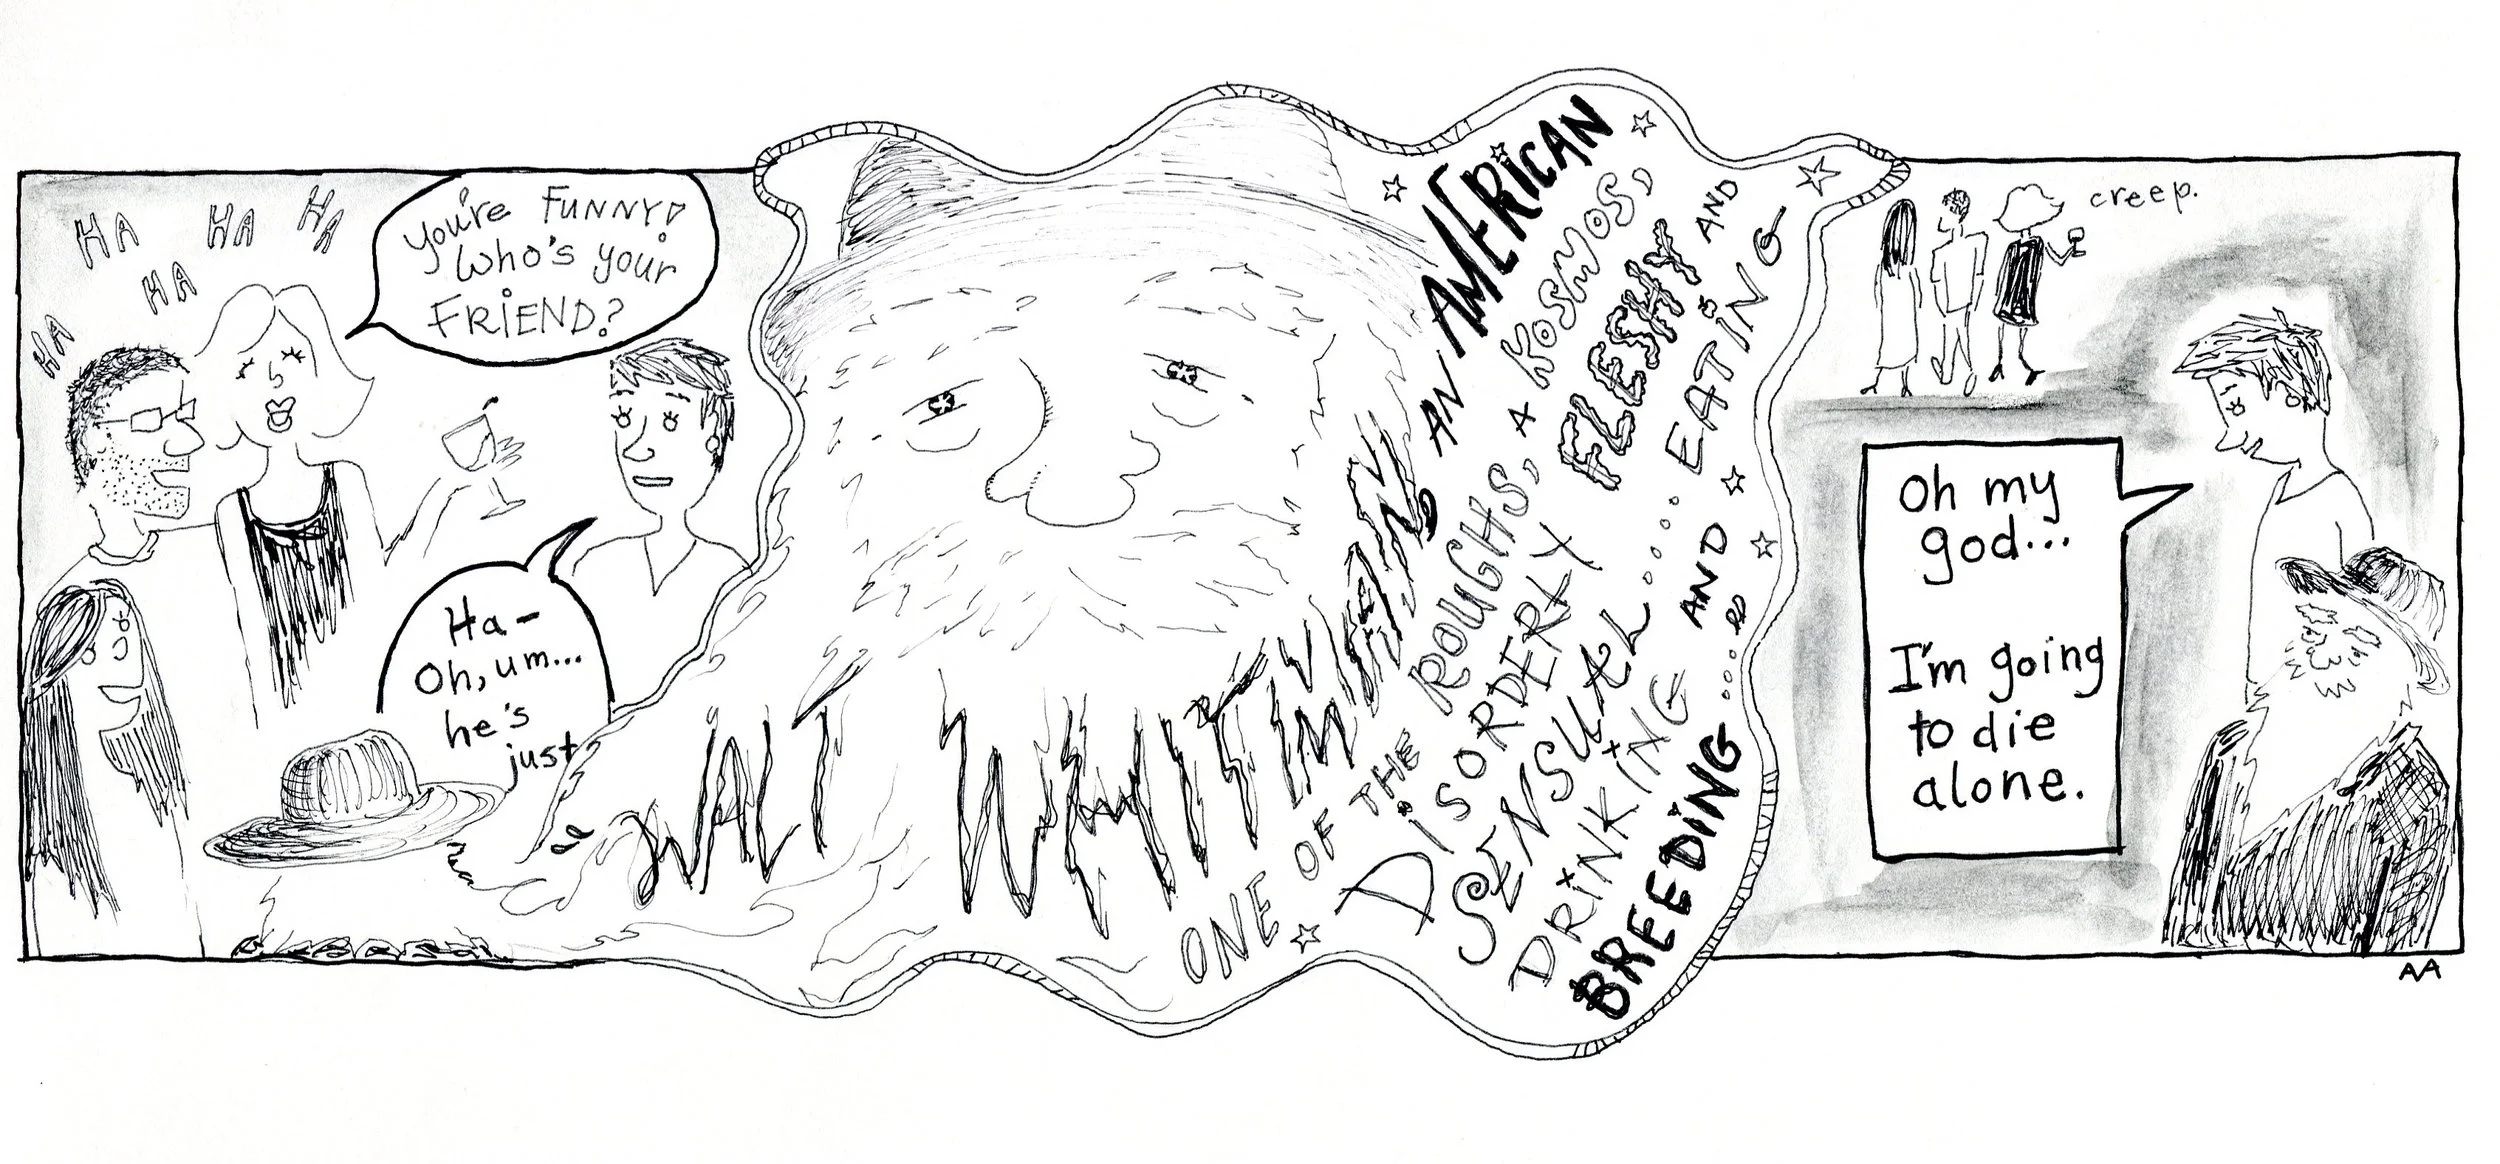 HA
HA
HA
HA
HA
You're FUNNY!
Who's your
FRIEND?
Ha-
Oh, um...
he's
just
WALT WHITMAN, AN AMERICAN
ONE OF THE ROUGHS, A KOSMOS,
DISORDERLY FLESHY AND
SENSUAL.... EATING
DRINKING AND
BREEDING....
creep.
Oh my
god...
I'm going
to die
alone.
AA